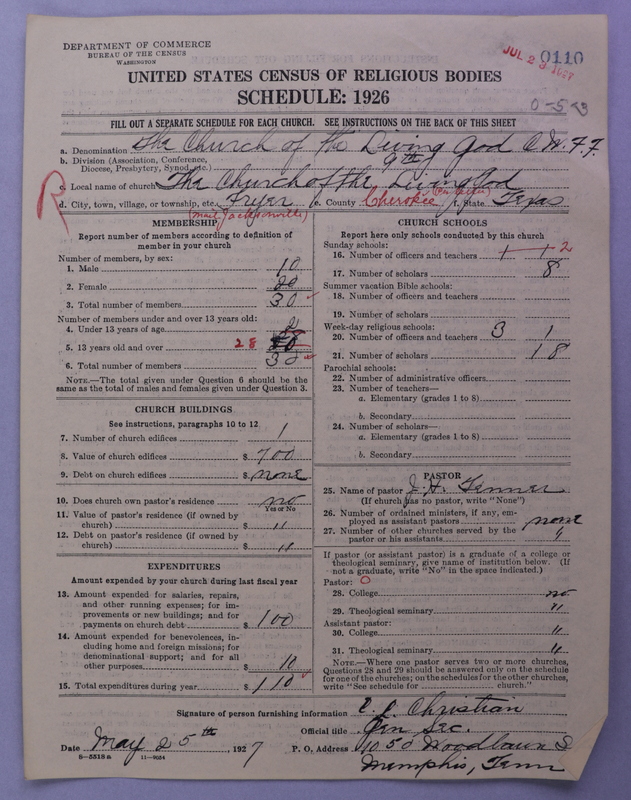 DEPARTMENT OF COMMERCE
BUREAU OF THE CENSUS
WASHINGTON
JUL 2 1927
0110
UNITED STATES CENSUS OF RELIGIOUS BODIES
SCHEDULE: 1926
0-53
FILL OUT A SEPARATE SCHEDULE FOR EACH CHURCH. SEE INSTRUCTIONS ON THE BACK OF THIS SHEET
a. Denomination The Church of the Living God C. W. F. F.
b. Division (Association, Conference,
Diocese, Presbytery, Synod, etc.) 9th
c. Local name of church The Church of the Living God
R
d. City, town, village, or township, etc. Fryer e. County Cherokee f. State Texas
(mail Jacksonville)
MEMBERSHIP
Report number of members according to definition of
member in your church
Number of members, by sex:
1. Male 10
2. Female 20
3. Total number of members 30
Number of members under and over 13 years old:
4. Under 13 years of age 2
5. 13 years old and over 28
6. Total number of members 30
NOTE.—The total given under Question 6 should be the
same as the total of males and females given under Question 3.
CHURCH BUILDINGS
See instructions, paragraphs 10 to 12
7. Number of church edifices 1
8. Value of church edifices $ 700
9. Debt on church edifices $ none
10. Does church own pastor's residence no
Yes or No
11. Value of pastor's residence (if owned by
church) $ "
12. Debt on pastor's residence (if owned by
church) $ "
EXPENDITURES
Amount expended by your church during last fiscal year
13. Amount expended for salaries, repairs,
and other running expenses; for im-
provements or new buildings; and for
payments on church debt $ 100
14. Amount expended for benevolences, in-
cluding home and foreign missions; for
denominational support; and for all
other purposes $ 10
15. Total expenditures during year $ 110
CHURCH SCHOOLS
Report here only schools conducted by this church
Sunday schools:
16. Number of officers and teachers 1 1 2
17. Number of scholars 8
Summer vacation Bible schools:
18. Number of officers and teachers
19. Number of scholars
Week-day religious schools:
20. Number of officers and teachers 3 1
21. Number of scholars 18
Parochial schools:
22. Number of administrative officers
23. Number of teachers—
a. Elementary (grades 1 to 8)
b. Secondary
24. Number of scholars—
a. Elementary (grades 1 to 8)
b. Secondary
PASTOR
25. Name of pastor J. H. Fenner
(If church has no pastor, write "None")
26. Number of ordained ministers, if any, em-
ployed as assistant pastors none
27. Number of other churches served by the
pastor or his assistants
If pastor (or assistant pastor) is a graduate of a college or
theological seminary, give name of institution below. (If
not a graduate, write "No" in the space indicated.)
Pastor: O
28. College no
29. Theological seminary "
Assistant pastor:
30. College "
31. Theological seminary "
NOTE.—Where one pastor serves two or more churches,
Questions 28 and 29 should be answered only on the schedule
for one of the churches; on the schedules for the other churches,
write "See schedule for church."
Signature of person furnishing information E. L. Christian
Official title Gen Sec.
Date May 25th, 1927 P. O. Address 1050 Woodlawn S
8—5318 a 11—9034
Memphis, Tenn